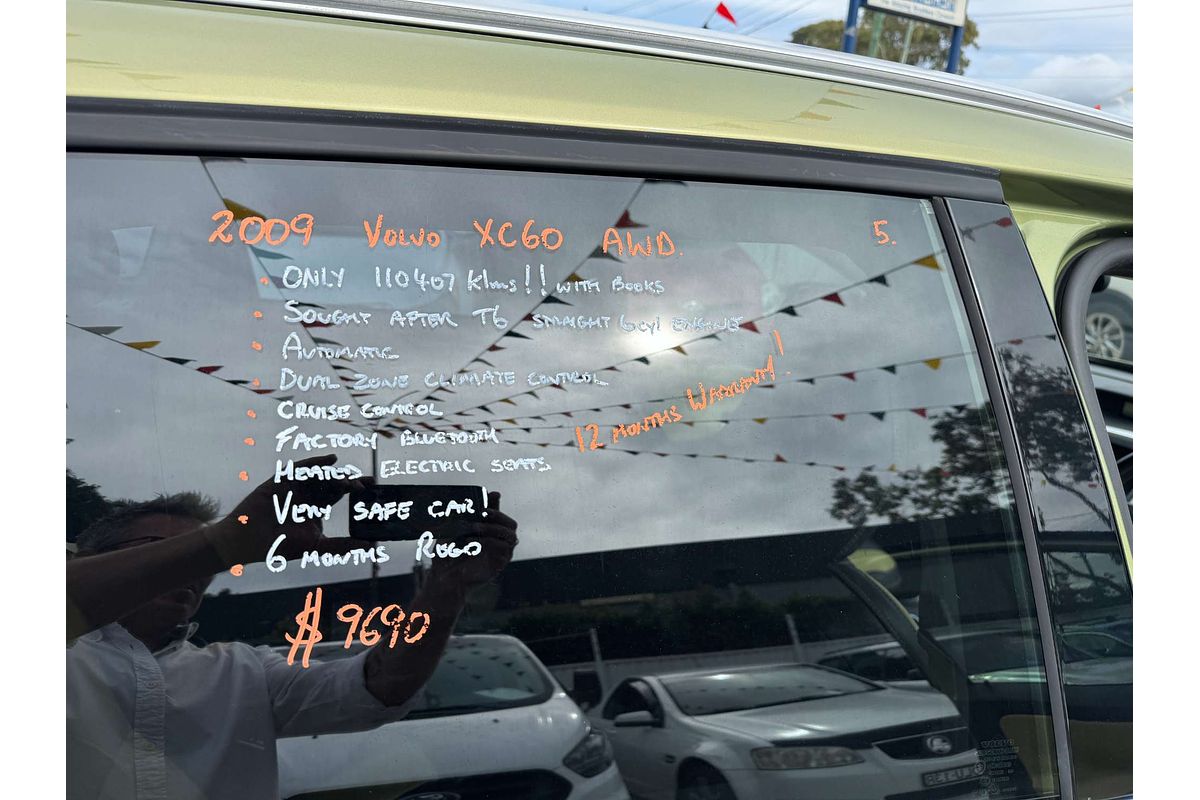 2009 VOLVO XC60 AWD. 5.
• ONLY 110407 klms!! WITH BOOKS
• SOUGHT AFTER T6 STRAIGHT 6cyl ENGINE
• AUTOMATIC
• DUAL ZONE CLIMATE CONTROL
• CRUISE CONTROL
12 MONTHS WARRANTY!
• FACTORY BLUETOOTH
• HEATED ELECTRIC SEATS
• VERY SAFE CAR!
• 6 MONTHS REGO
$9690
VOLVO